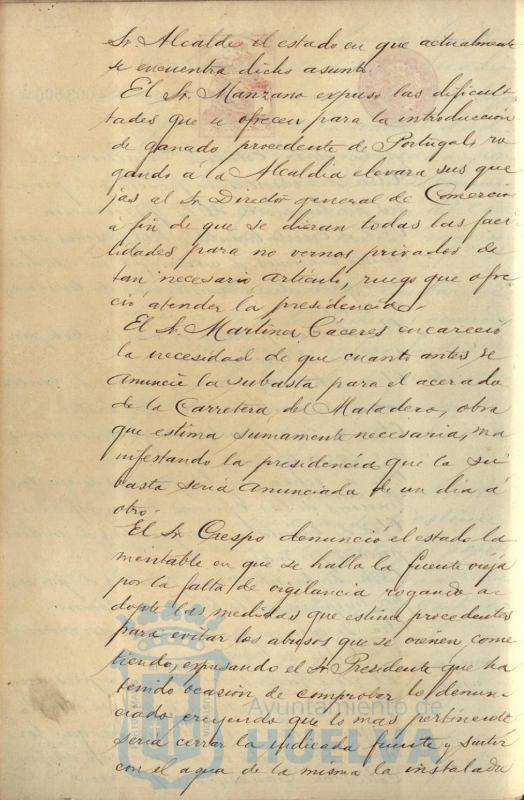 Sr. Alcalde el estado en que actualmente
se encuentra dicho asunto.
El Sr. Manzano expuso las dificul-
tades que se ofrecen para la introducción
de ganado procedente de Portugal, ro
gando á la Alcaldia elevara sus que
jas al Sr. Director general de Comercio
á fin de que se dieran todas las faci
lidades para no vernos privados de
tan necesario artículo, ruego que ofre
ció atender la presidencia.
El Sr. Martinez Cáceres encareció
la necesidad de que cuanto antes se
anuncie la subasta para el acerado
de la Carretera del Matadero, obra
que estima sumamente necesaria, ma
nifestando la presidencia que la su
basta seria anunciada de un dia á
otro.
El Sr. Crespo denunció el estado la
mentable en que se halla la fuente vieja
por la falta de vigilancia rogando a-
dopte las medidas que estime procedentes
para evitar los abusos que se vienen come
tiendo, expresando el Sr. Presidente que ha
tenido ocasión de comprobar lo denun
ciado creyendo que lo mas pertinente
seria cerrar la indicada fuente y surtir
con el agua de la misma la instalada
Ayuntamiento de
HUELVA